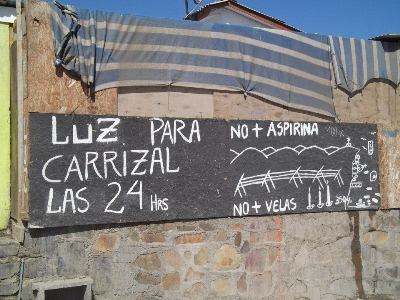 LUZ PARA
CARRIZAL
LAS 24 HRS
NO + ASPIRINA
NO + VELAS